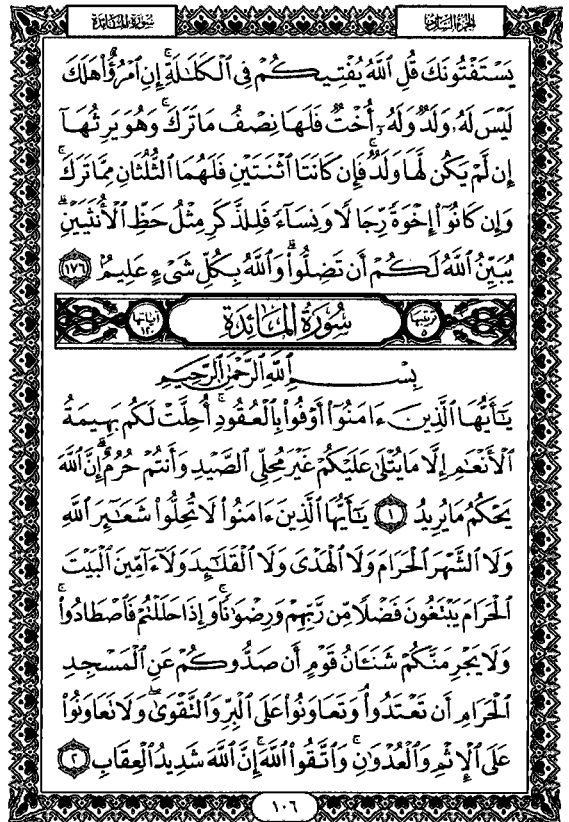 الجزء السادس
سورة المائدة
يَسْتَفْتُونَكَ قُلِ ٱللَّهُ يُفْتِيكُمْ فِى ٱلْكَلَٰلَةِ ۚ إِنِ ٱمْرُؤٌا۟ هَلَكَ
لَيْسَ لَهُۥ وَلَدٌ وَلَهُۥٓ أُخْتٌ فَلَهَا نِصْفُ مَا تَرَكَ ۚ وَهُوَ يَرِثُهَآ
إِن لَّمْ يَكُن لَّهَا وَلَدٌ ۚ فَإِن كَانَتَا ٱثْنَتَيْنِ فَلَهُمَا ٱلثُّلُثَانِ مِمَّا تَرَكَ ۚ
وَإِن كَانُوٓا۟ إِخْوَةً رِّجَالًا وَنِسَآءً فَلِلذَّكَرِ مِثْلُ حَظِّ ٱلْأُنثَيَيْنِ ۗ
يُبَيِّنُ ٱللَّهُ لَكُمْ أَن تَضِلُّوا۟ ۗ وَٱللَّهُ بِكُلِّ شَىْءٍ عَلِيمٌۢ ١٧٦
ترتيبها ٥ سورة المائدة آياتها ١٢٠
بِسْمِ ٱللَّهِ ٱلرَّحْمَٰنِ ٱلرَّحِيمِ
يَٰٓأَيُّهَا ٱلَّذِينَ ءَامَنُوٓا۟ أَوْفُوا۟ بِٱلْعُقُودِ ۚ أُحِلَّتْ لَكُم بَهِيمَةُ
ٱلْأَنْعَٰمِ إِلَّا مَا يُتْلَىٰ عَلَيْكُمْ غَيْرَ مُحِلِّى ٱلصَّيْدِ وَأَنتُمْ حُرُمٌ ۗ إِنَّ ٱللَّهَ
يَحْكُمُ مَا يُرِيدُ ١ يَٰٓأَيُّهَا ٱلَّذِينَ ءَامَنُوا۟ لَا تُحِلُّوا۟ شَعَٰٓئِرَ ٱللَّهِ
وَلَا ٱلشَّهْرَ ٱلْحَرَامَ وَلَا ٱلْهَدْىَ وَلَا ٱلْقَلَٰٓئِدَ وَلَآ ءَآمِّينَ ٱلْبَيْتَ
ٱلْحَرَامَ يَبْتَغُونَ فَضْلًا مِّن رَّبِّهِمْ وَرِضْوَٰنًا ۚ وَإِذَا حَلَلْتُمْ فَٱصْطَادُوا۟ ۚ
وَلَا يَجْرِمَنَّكُمْ شَنَـَٔانُ قَوْمٍ أَن صَدُّوكُمْ عَنِ ٱلْمَسْجِدِ
ٱلْحَرَامِ أَن تَعْتَدُوا۟ ۘ وَتَعَاوَنُوا۟ عَلَى ٱلْبِرِّ وَٱلتَّقْوَىٰ ۖ وَلَا تَعَاوَنُوا۟
عَلَى ٱلْإِثْمِ وَٱلْعُدْوَٰنِ ۚ وَٱتَّقُوا۟ ٱللَّهَ ۖ إِنَّ ٱللَّهَ شَدِيدُ ٱلْعِقَابِ ٢
١٠٦